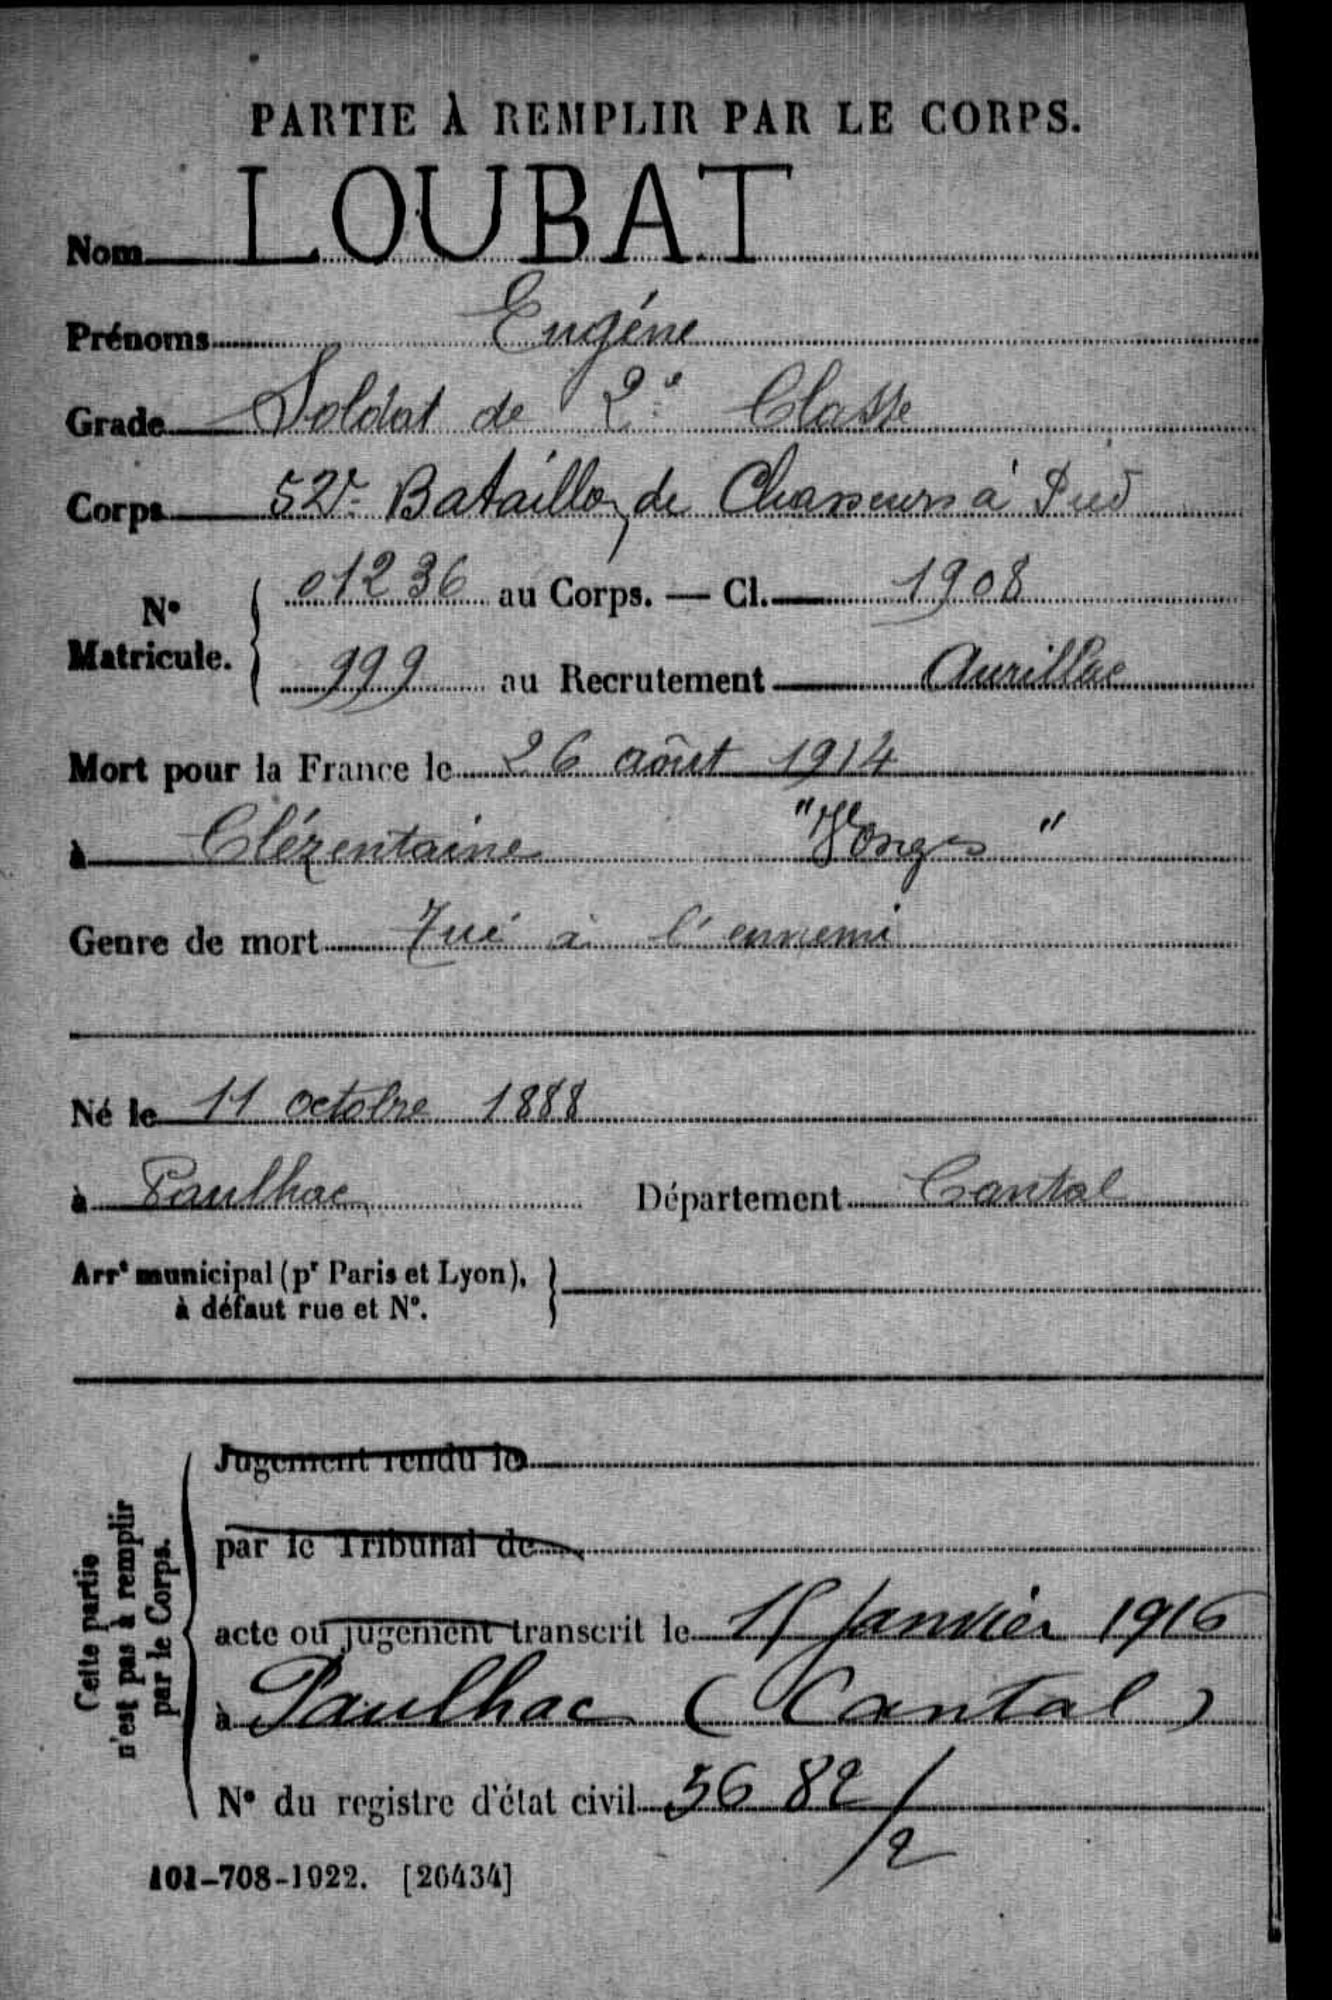 PARTIE À REMPLIR PAR LE CORPS.
Nom LOUBAT
Prénoms Eugéne
Grade Soldat de 2e Classe
Corps 52e Bataillon de Chasseurs à Pied
N° Matricule. 01236 au Corps. — Cl. 1908
999 au Recrutement Aurillac
Mort pour la France le 26 août 1914
à Clézentaine "Vosges"
Genre de mort Tué à l'ennemi
Né le 11 octobre 1888
à Paulhac Département Cantal
Arrt municipal (pr Paris et Lyon),
à défaut rue et N°.
Cette partie
n'est pas à remplir
par le Corps.
Jugement rendu le
par le Tribunal de
acte ou jugement transcrit le 15 Janvier 1916
à Paulhac (Cantal)
N° du registre d'état civil 5682/2
101-708-1922. [26434]